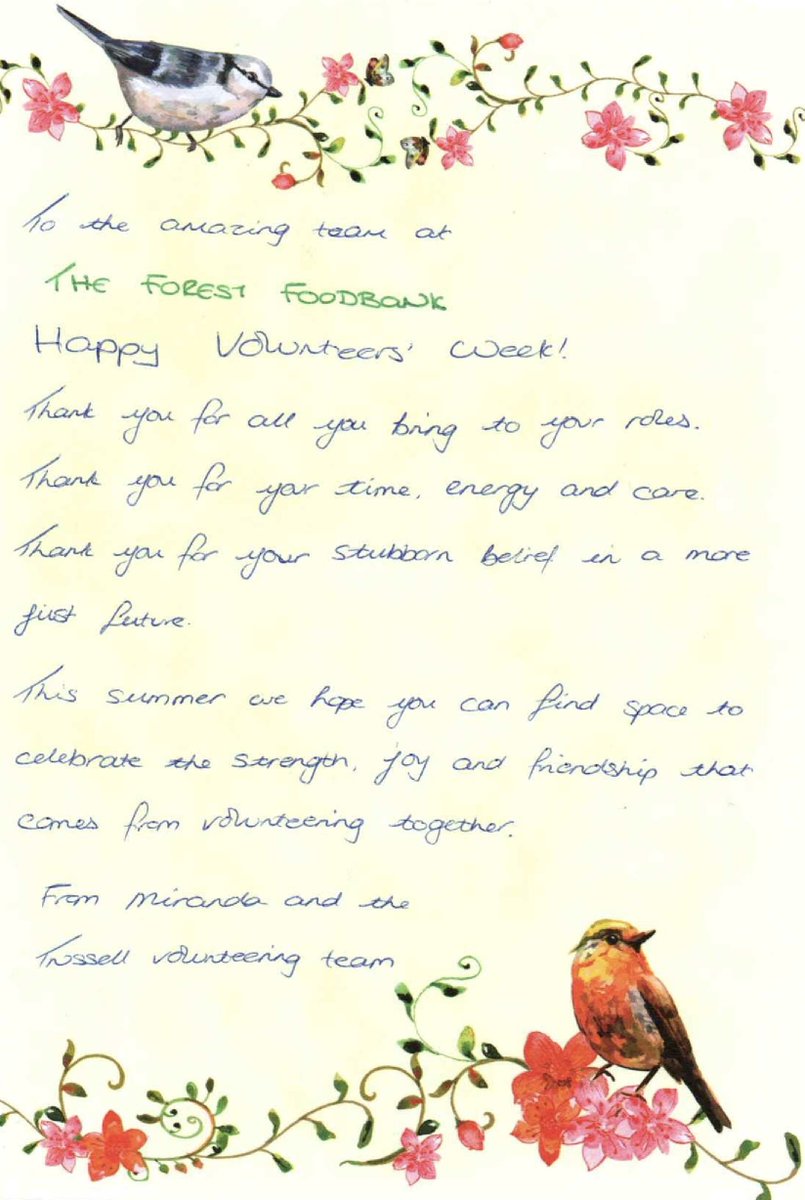 To the amazing team at
THE FOREST FOODBANK
Happy Volunteers' Week!
Thank you for all you bring to your roles.
Thank you for your time, energy and care.
Thank you for your stubborn belief in a more
just future.
This summer we hope you can find space to
celebrate the strength, joy and friendship that
comes from volunteering together.
From Miranda and the
Trussell volunteering team